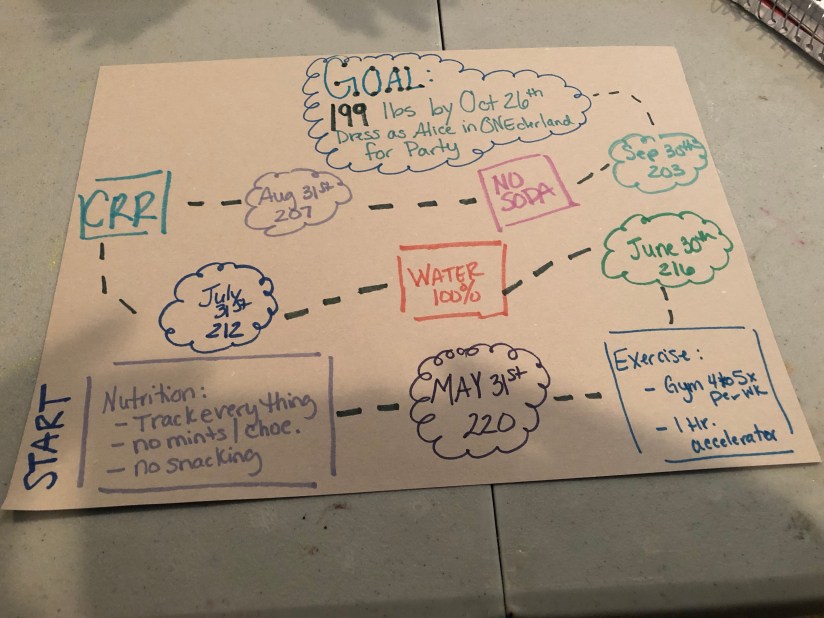 GOAL:
199 lbs by Oct 26th
Dress as Alice in ONEderland
for Party
Sep 30th
203
NO
SODA
Aug 31st
207
CRR
July
31st
212
WATER
100%
June 30th
216
Exercise:
- Gym 4 to 5x
per wk
- 1 Hr.
accelerator
MAY 31st
220
Nutrition:
- Track every thing
- no mints / choc.
- no snacking
START